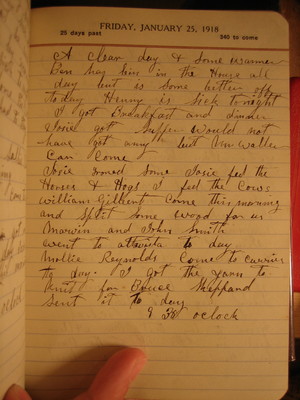 FRIDAY, JANUARY 25, 1918
25 days past 340 to come
A Clear day & Some warmer
Ben has bin in the House all
day but is Some better
to day Henry is Sick to night
I got Breakfast and Dinner
Josie got Supper would not
have got any but Mr Waller
Can Come
Josie ironed Some Josie fed the
Horses & Hogs I fed the Cows
William Gilbert Come this morning
and Split Some wood for us
Marvin and John Smith
went to to day
Mollie Reynolds Come to
to day. I got the yarn to
Knit for Sheppard
Sent it to day
9 30 oclock